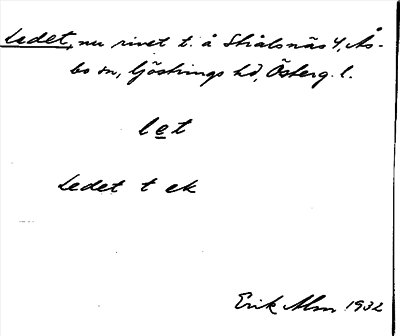 Ledet, nu rivet t. å Stålsnäs 4, Ås-
bo sn, Göstrings hd, Österg. l.
let
Ledet t ek
Erik Alm 1932